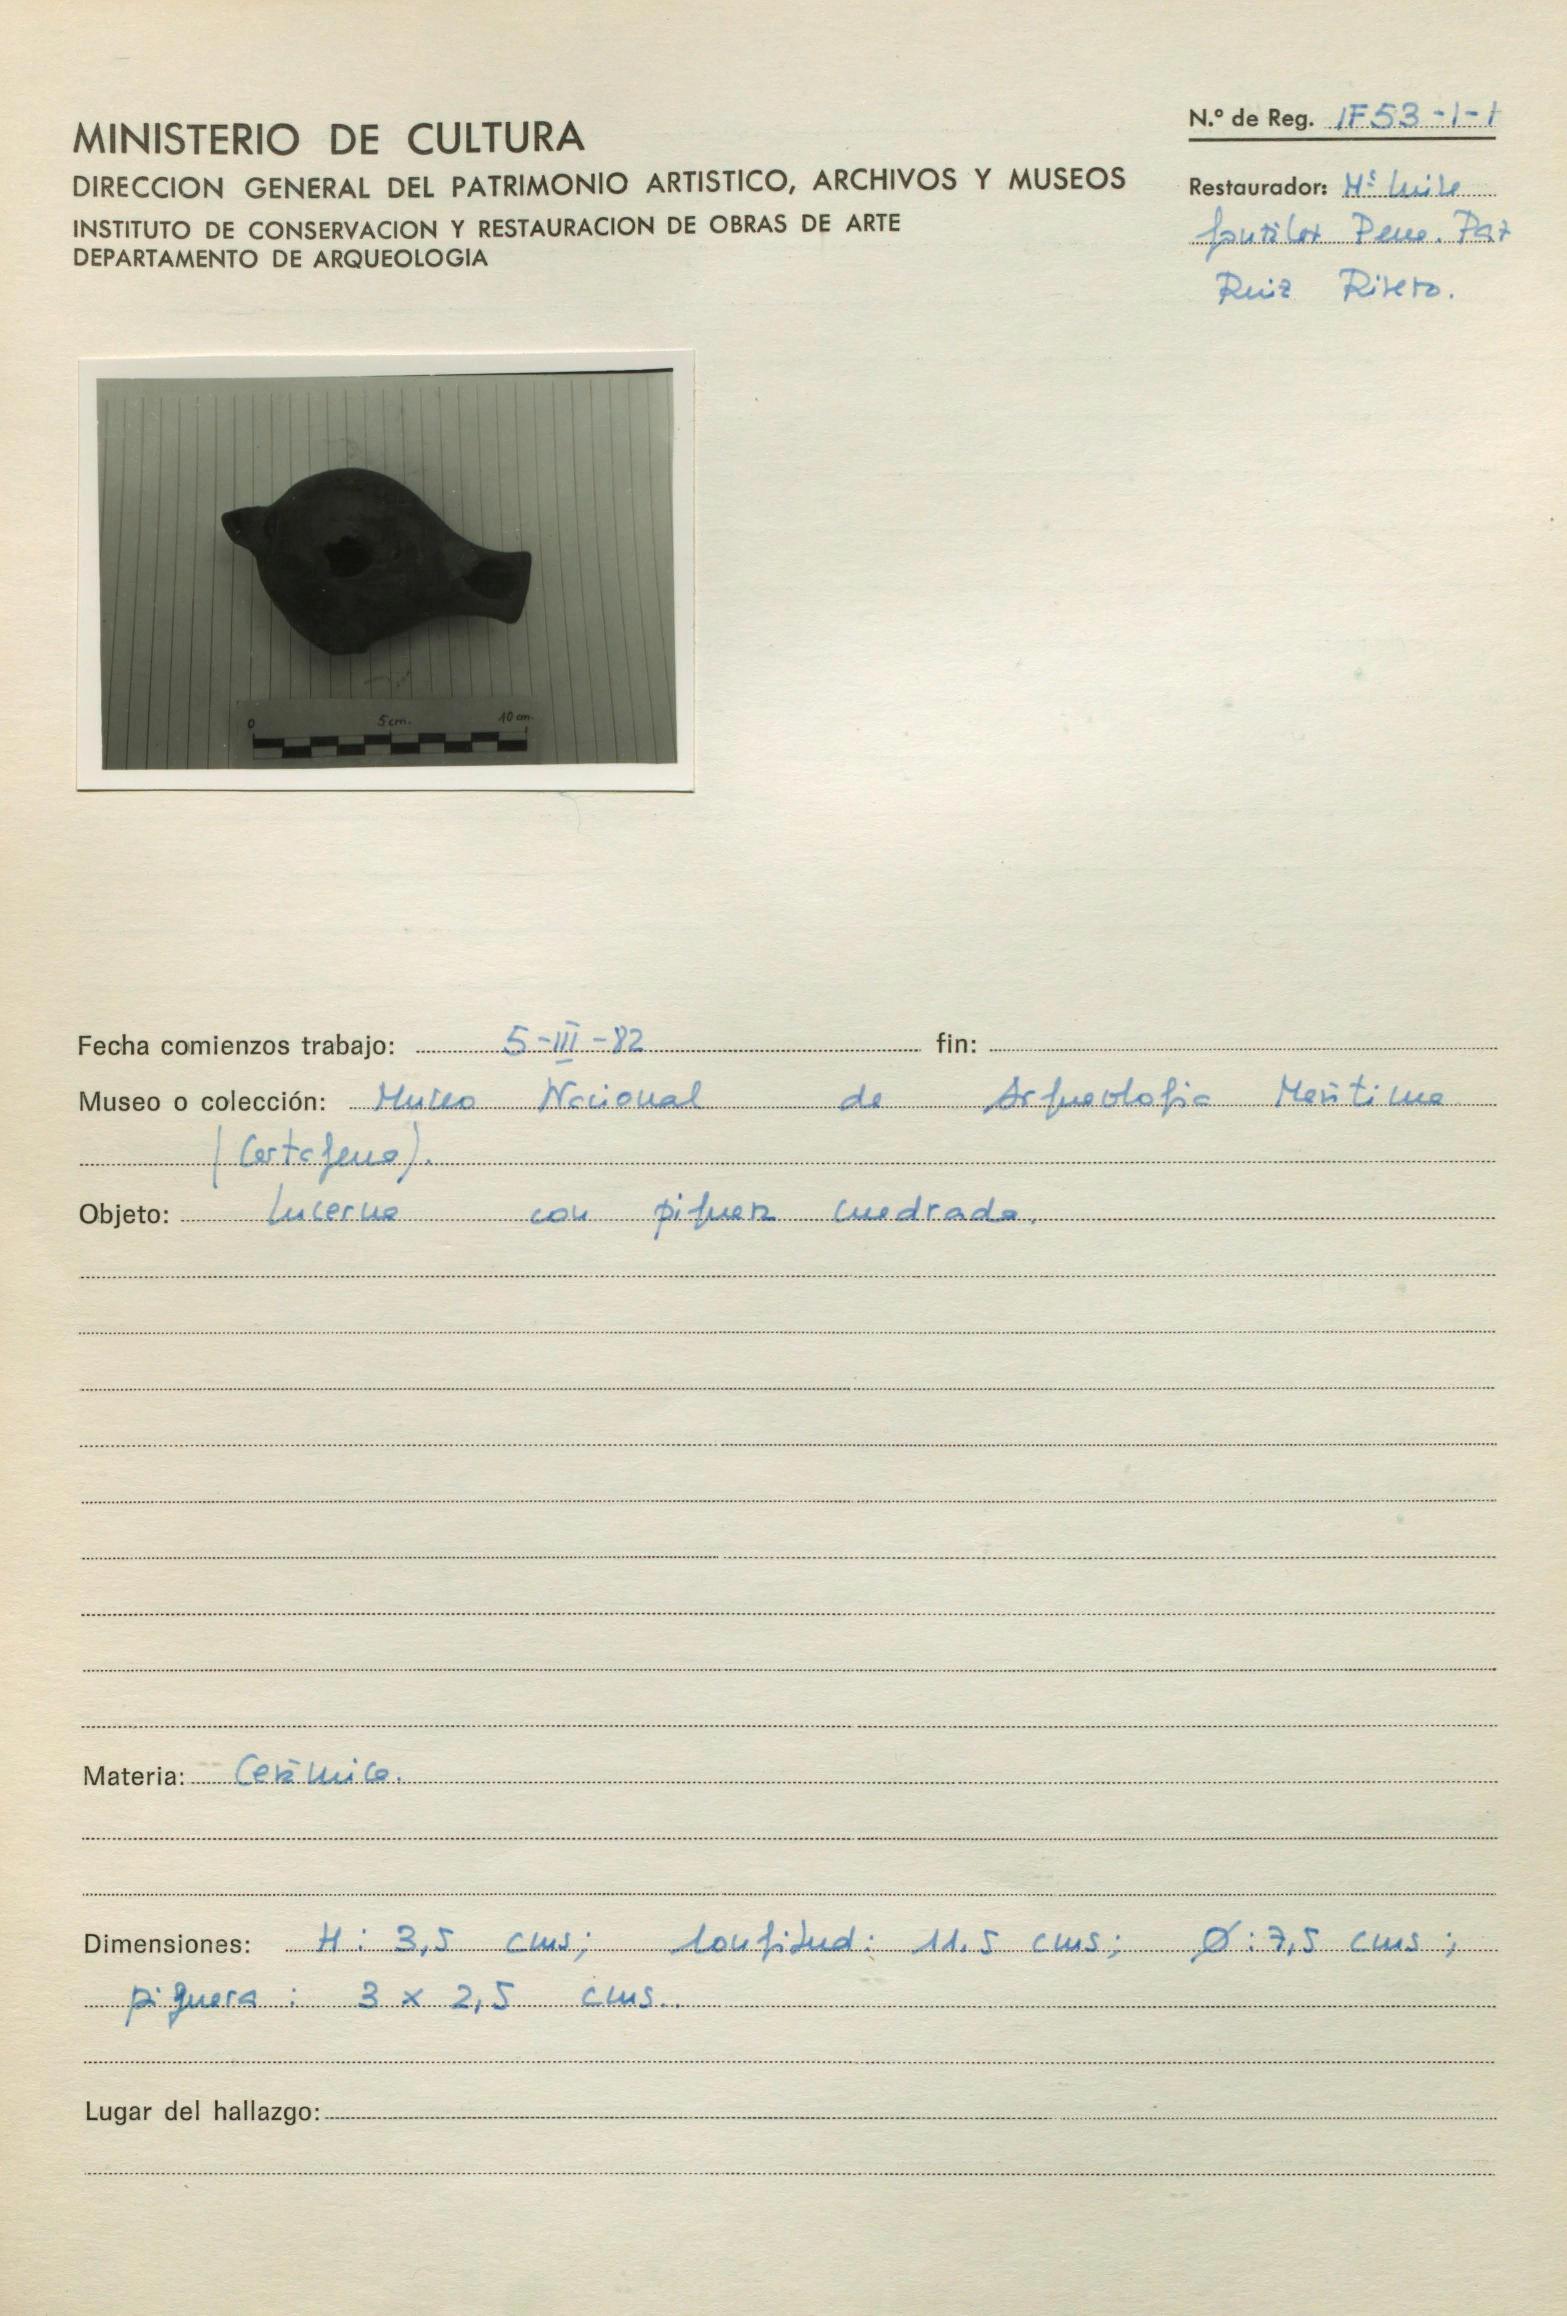 MINISTERIO DE CULTURA
DIRECCION GENERAL DEL PATRIMONIO ARTISTICO, ARCHIVOS Y MUSEOS
INSTITUTO DE CONSERVACION Y RESTAURACION DE OBRAS DE ARTE
DEPARTAMENTO DE ARQUEOLOGIA
N.º de Reg. IF53-1-1
Restaurador: Mª Luisa
Pena. Paz
Ruiz Rivero.
0 5 cm. 10 cm.
Fecha comienzos trabajo: 5-III-82 fin:
Museo o colección: Museo Nacional de Arqueologia Marítima
(Cartagena).
Objeto: Lucerna con piquera cuadrada.
Materia: Cerámica.
Dimensiones: H: 3,5 cms; longitud: 11.5 cms; Ø: 7,5 cms;
piquera: 3 x 2,5 cms.
Lugar del hallazgo: